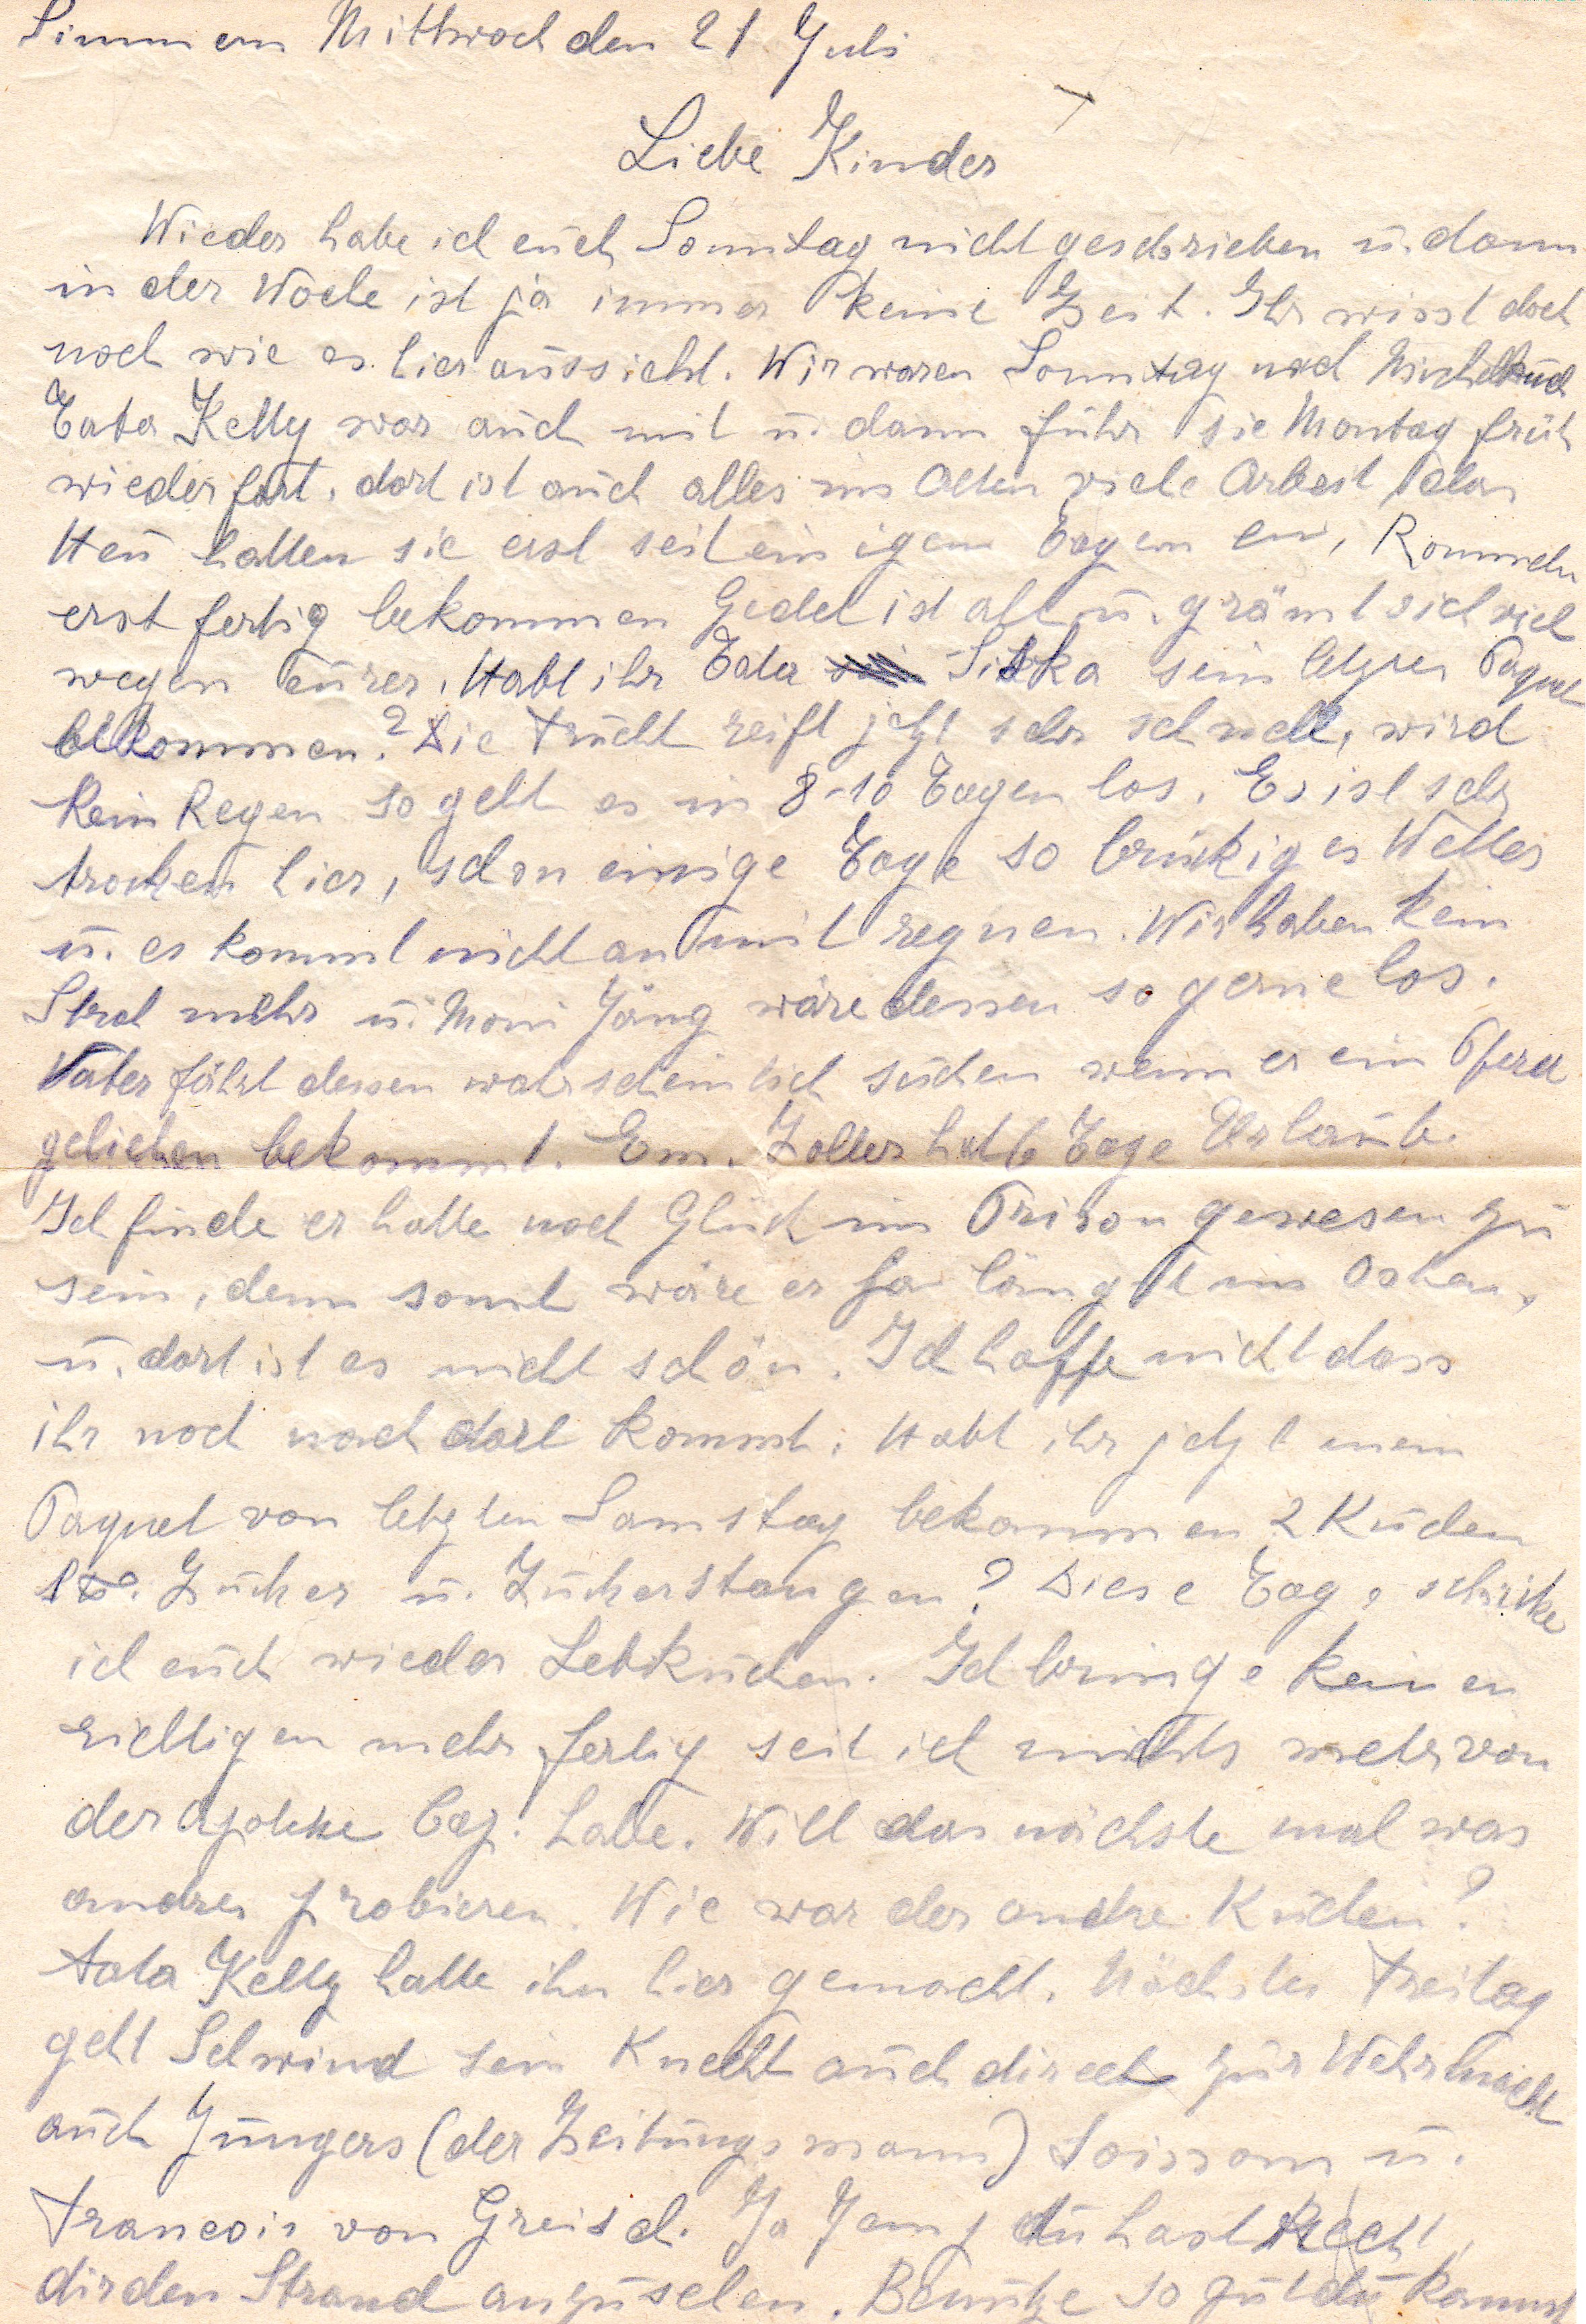 Simmern Mittwoch den 21 Juli
Liebe Kinder
Wieder habe ich euch Sonntag nicht geschrieben u. dann
in der Woche ist ja immer keine Zeit. Ihr wisst doch
noch wie es hier aussieht. Wir waren Sonntag nach
Tata Ketty war auch mit u. dann fuhr sie Montag früh
wieder fort, dort ist auch alles im Alten viele Arbeit das
Heu hatten sie erst seit einigen Tagen ein, Rommeln
erst fertig bekommen Gedel ist alt u. grämt sich viel
wegen eurer. Habt ihr Tata Siska sein letztes Paquet
bekommen? Die Frucht reift jetzt sehr schnell, wird
kein Regen so geht es in 8-10 Tagen los. Es ist sehr
trocken hier, schon einige Tage so brückiges Wetter
u. es kommt nicht an mit regnen. Wir haben kein
Stroh mehr u. Moni Jäng wäre dessen so gerne los.
Vater fährt dessen wahrscheinlich suchen wenn er ein Pferd
geliehen bekommt. Em. Zoller hat 6 Tage Urlaub.
Ich finde er hatte noch Glück im Prison gewesen zu
sein, denn sonst wäre er ja längst im Osten,
u. dort ist es nicht schön. Ich hoffe nicht dass
ihr noch nach dort kommt. Habt ihr jetzt mein
Paquet von letzten Samstag bekommen 2 Kuchen
Zucker u. Zuckerstangen? Diese Tage schicke
ich euch wieder Lebkuchen. Ich bringe keinen
richtigen mehr fertig seit ich nichts mehr von
der habe. Will das nächste mal was
andres probieren. Wie war der andre Kuchen?
Tata Ketty hatte ihn hier gemacht. Nächster Freitag
geht Schwind sein Knecht auch direct zur Wehrmacht
auch Jungers (der Zeitungsmann) Soisson u.
Francois von Greisch. Ja Jeng du hast Recht,
dir den Strand anzusehen. Benutze so gut du kannst